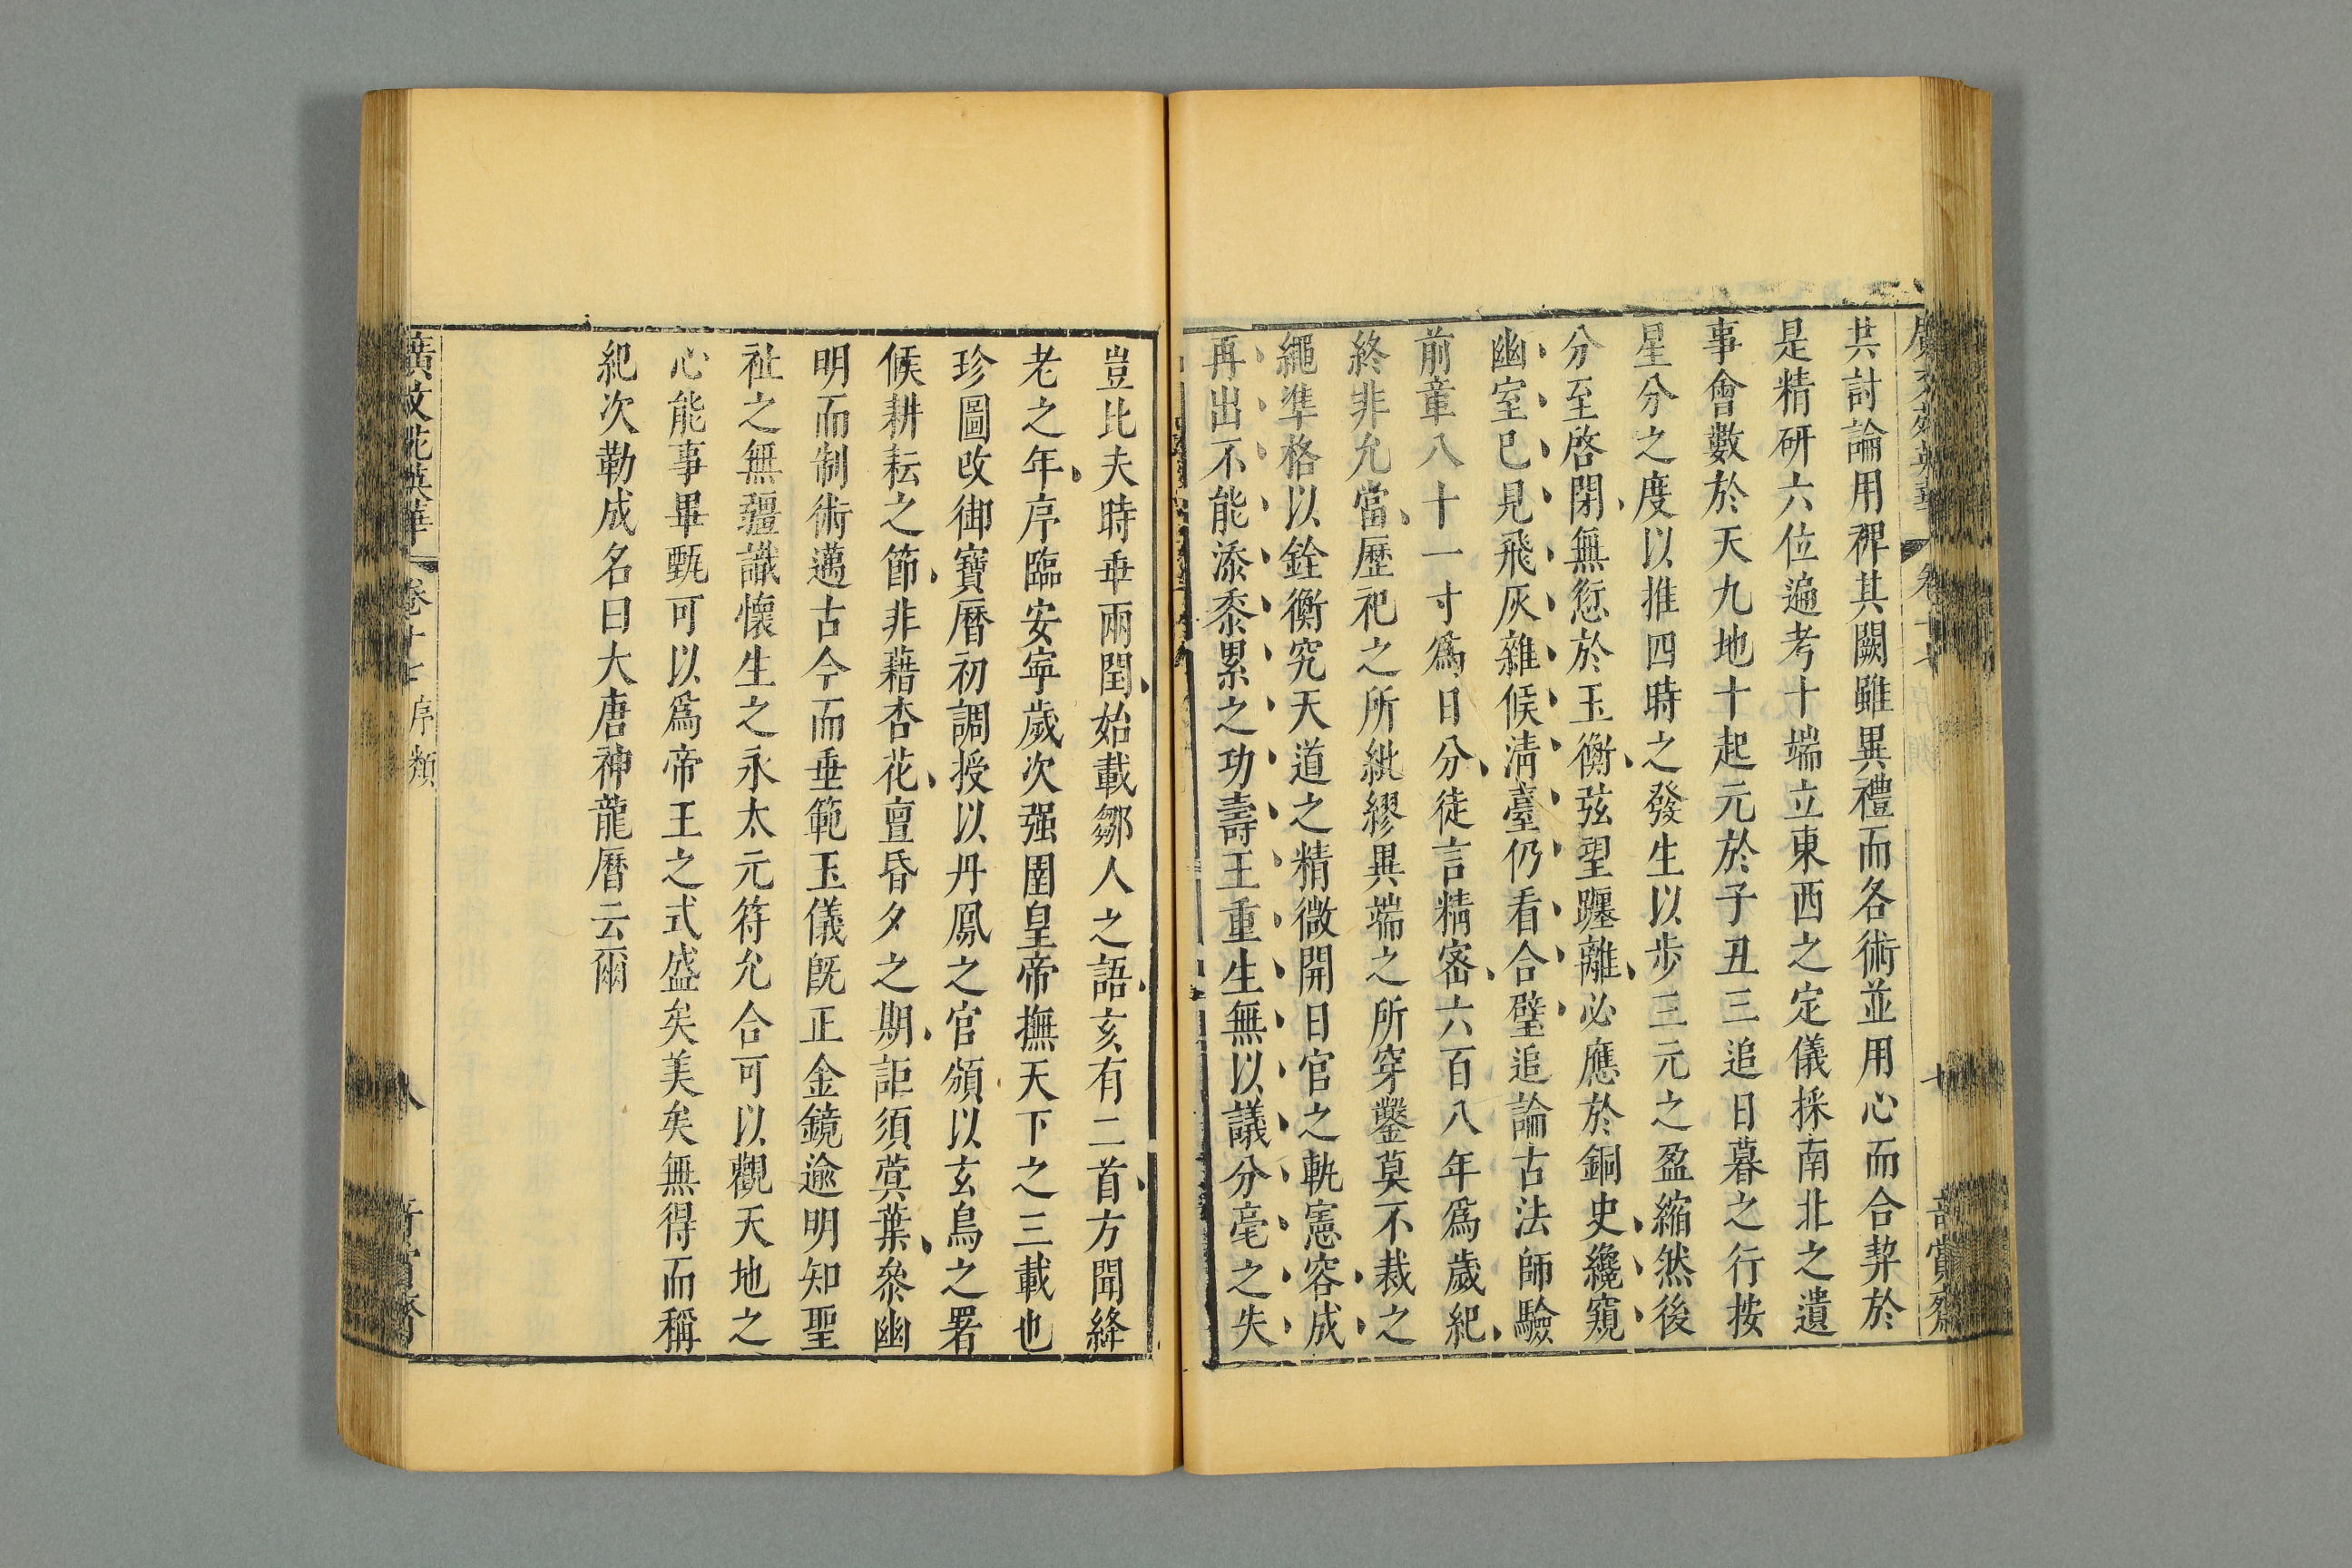 共討論用稗其闕雖異禮而各術並用心而合契於
是精研六位遍考十端立東西之定儀採南北之遺
事會數於天九地十起元於子丑三追日暮之行按
星分之度以推四時之發生以步三元之盈縮然後
分至啓閉無愆於玉衡弦望躔離必應於銅史纔窺
幽室已見飛灰雜候淸臺仍看合璧追論古法師驗
前章八十一寸爲日分徒言精宻六百八年爲歲紀
終非允當歷祀之所紕繆異端之所穿鑿莫不裁之
繩準格以銓衡究天道之精微開日官之軌憲容成
再出不能添黍累之功壽王重生無以議分毫之失
豈比夫時乖兩閏始載鄒人之語亥有二首方聞絳
老之年序臨安寧歲次强圉皇帝撫天下之三載也
珍圖改御寶曆初調授以丹鳳之官頒以玄鳥之署
候耕耘之節非藉杏花亶昏夕之期詎須蓂葉叅幽
明而制術邁古今而垂範玉儀旣正金鏡逾明知聖
祉之無疆識懷生之永太元符允合可以觀天地之
心能事畢甄可以爲帝王之式盛矣美矣無得而稱
紀次勒成名曰大唐神龍曆云爾
廣文苑英華 卷十七 序類 八